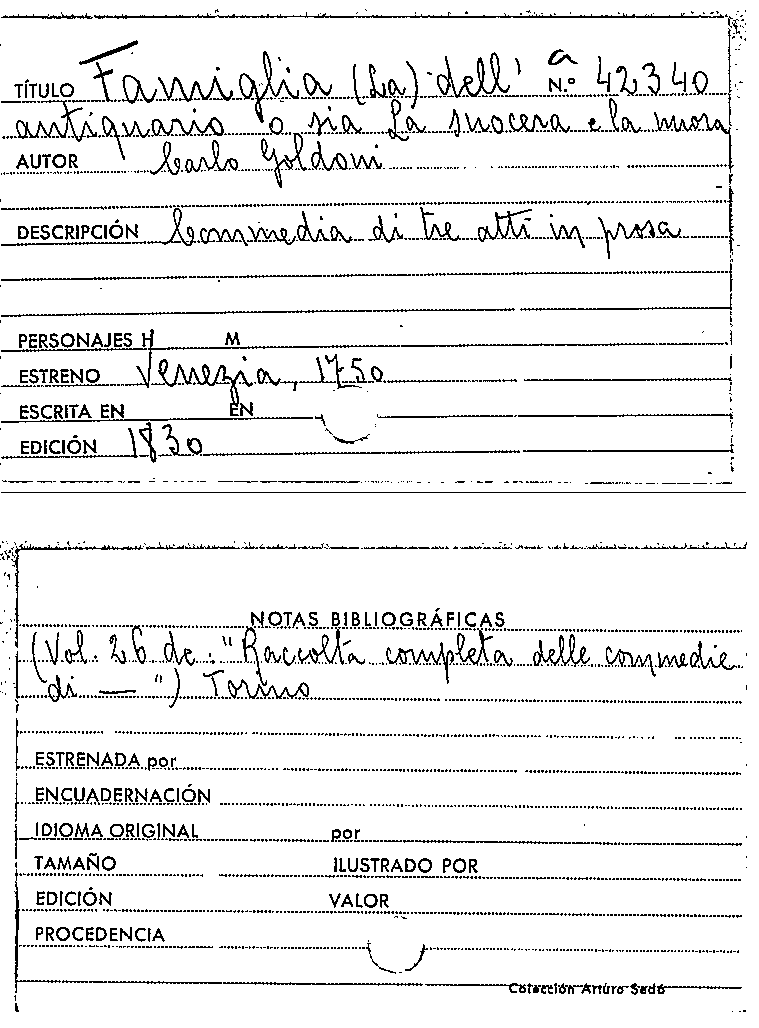 TÍTULO Famiglia (La) dell' a N.º 42340
antiquario o sia La suocera e la nuora
AUTOR Carlo Goldoni
DESCRIPCIÓN Commedia di tre atti in prosa
PERSONAJES H M
ESTRENO Venezia, 1750
ESCRITA EN EN
EDICIÓN 1830
NOTAS BIBLIOGRÁFICAS
(Vol. 26 de: "Raccolta completa delle commedie
di — ") Torino
ESTRENADA por
ENCUADERNACIÓN
IDIOMA ORIGINAL por
TAMAÑO ILUSTRADO POR
EDICIÓN VALOR
PROCEDENCIA
Colección Arturo Sedó